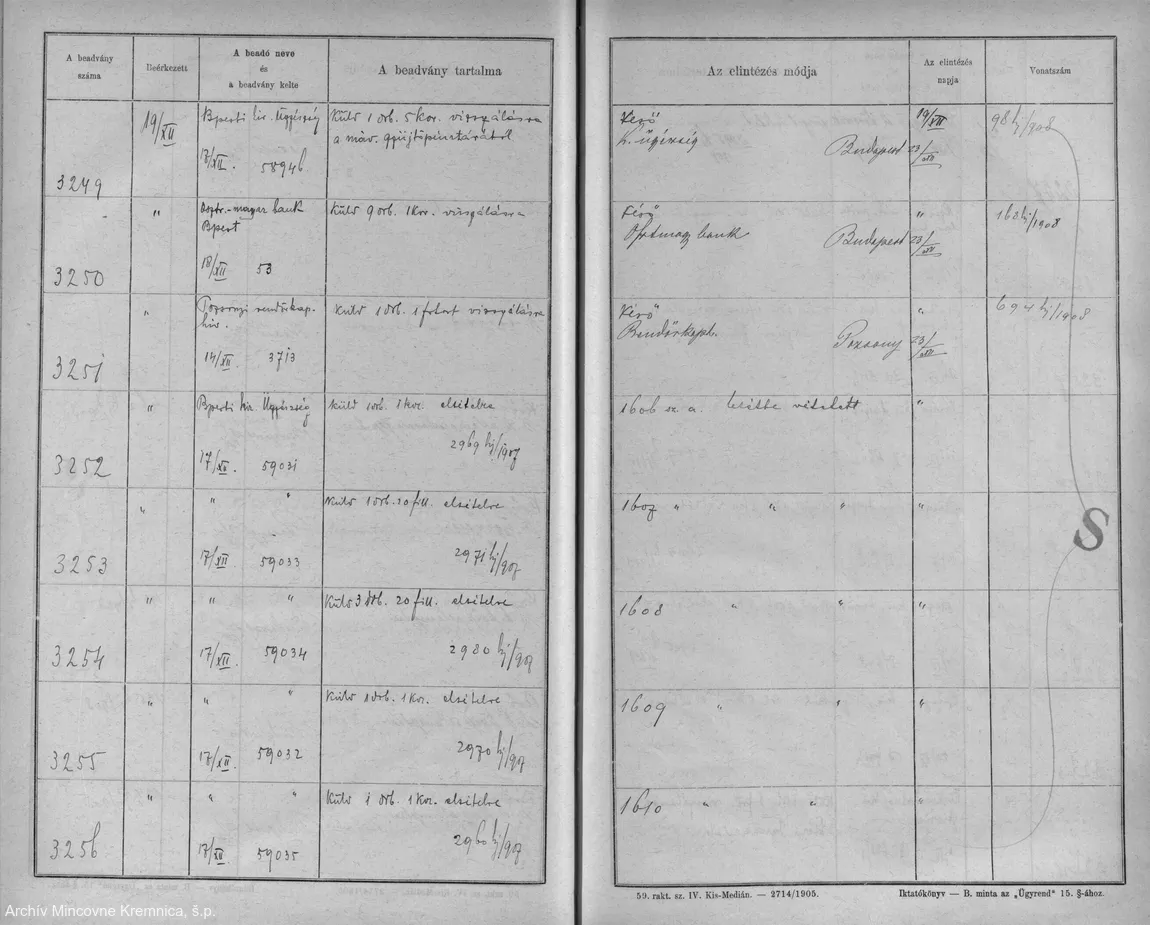 A beadvány
száma
Beérkezett
A beadó neve
és
a beadvány kelte
A beadvány tartalma
3249
19/XII
Bpesti kir. Ügyészség
17/XII. 58946
Küld 1 drb. 5 kor. vizsgálásra
a máv. gyüjtőpénztárától
3250
"
Osztr.-magyar bank
Bpest
18/XII 53
Küld 9 drb. 1 kor. vizsgálásra
3251
"
Pozsonyi rendőrkap-
14/XII 3713
Küld 1 drb. 1 frtost vizsgálásra
3252
"
Bpesti kir. Ügyészség
17/XII. 59031
Küld 1 drb. 1 kor. elsitelre
2969 bj/907
3253
"
" "
17/XII 59033
Küld 1 drb. 20 fill. elsitelre
2971 bj/907
3254
"
" "
17/XII. 59034
Küld 3 drb. 20 fill. elsitelre
2980 bj/907
3255
"
" "
17/XII. 59032
Küld 1 drb. 1 kor. elsitelre
2970 bj/907
3256
"
" "
17/XII 59035
Küld 1 drb. 1 kor. elsitelre
2960 bj/907
Az elintézés módja
Az elintézés
napja
Vonatszám
K. ügyészség
Budapest 23/XII
19/XII
98 bj/908
bank
Budapest 23/XII
"
163 bj/908
Rendőrkapt.
Pozsony 23/XII
"
694 bj/908
1606 sz. a. vétetett
"
1607 " " " "
1608 " " "
1609 " " "
1610 " " "
S
59. rakt. sz. IV. Kis-Medián. — 2714/1905.
Iktatókönyv — B. minta az „Ügyrend" 15. §-ához.
Archív Mincovne Kremnica, š.p.